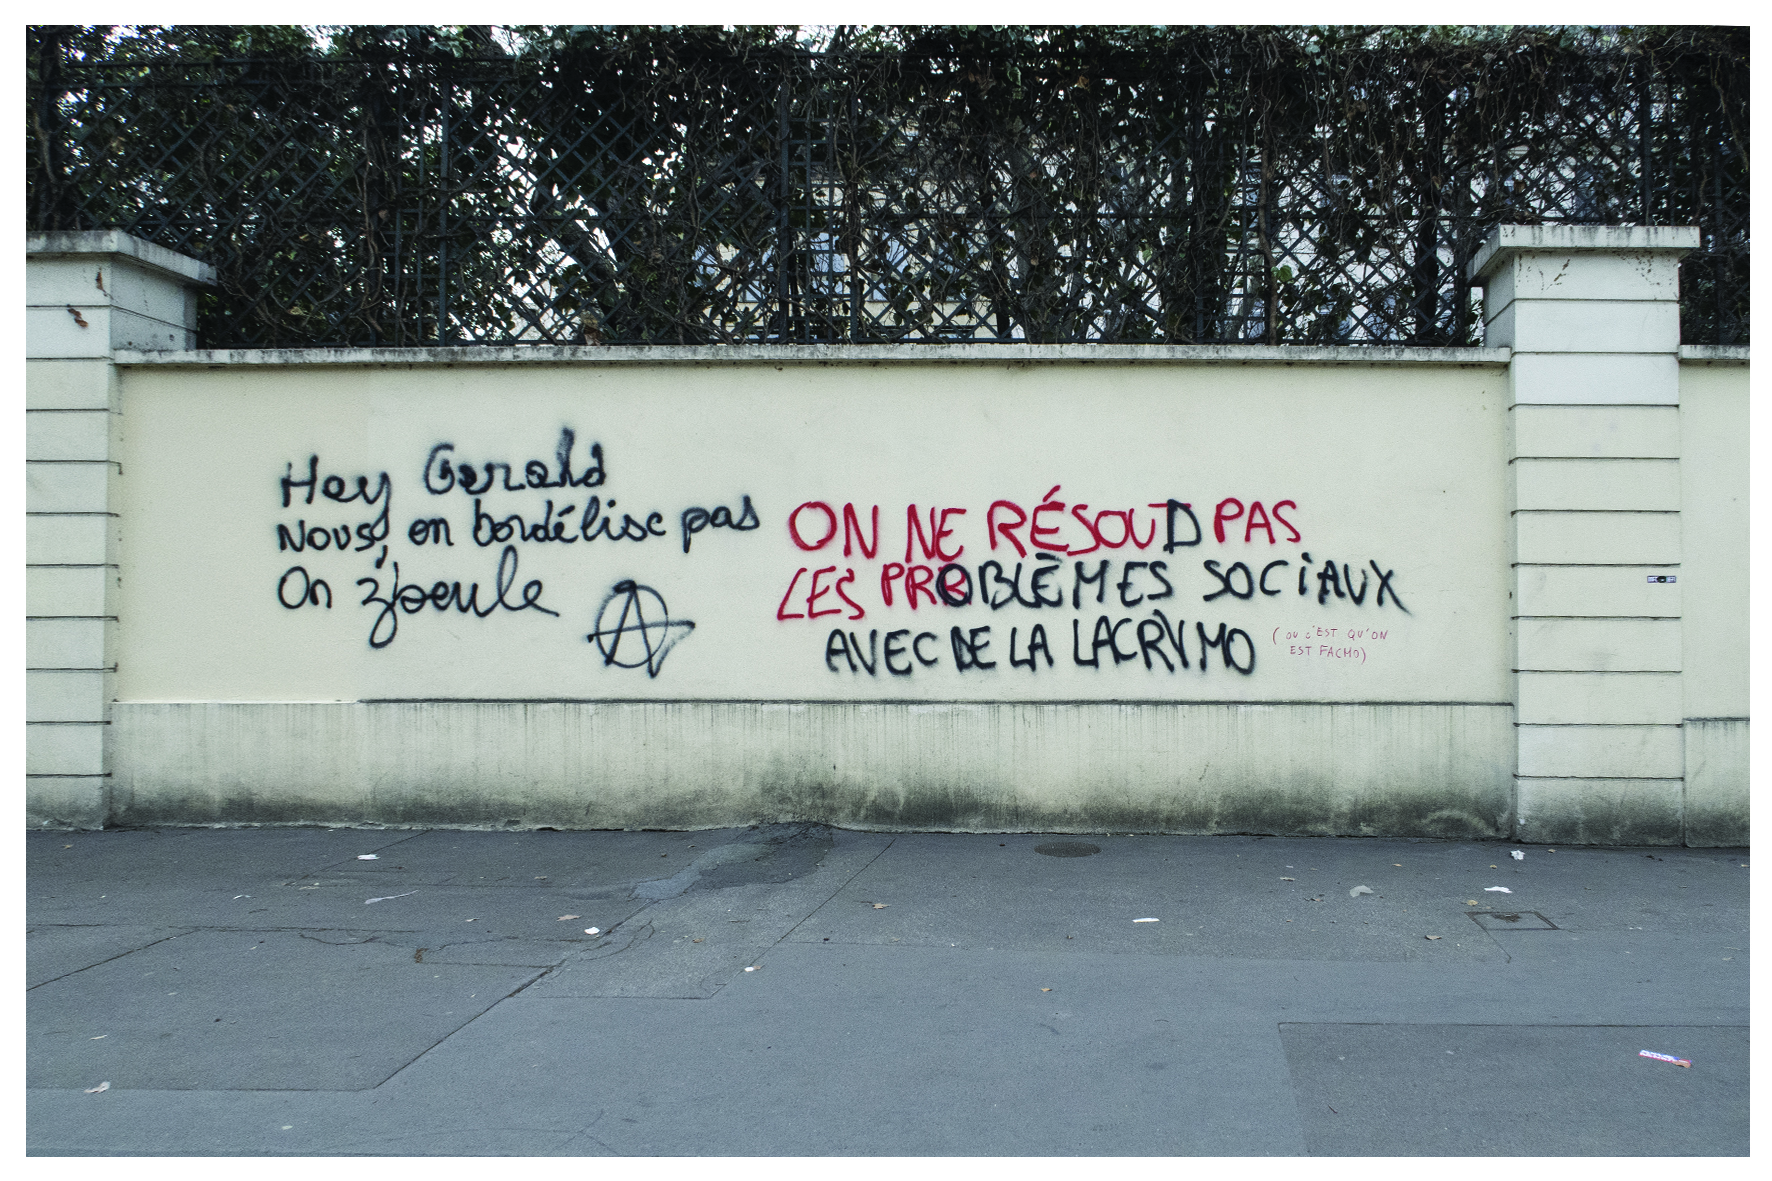 Hey Gerald
Nous, on bordélise pas
On
ON NE RÉSOUD PAS
LES PROBLÈMES SOCIAUX
AVEC DE LA LACRYMO
(OU C'EST QU'ON
EST FACHO)